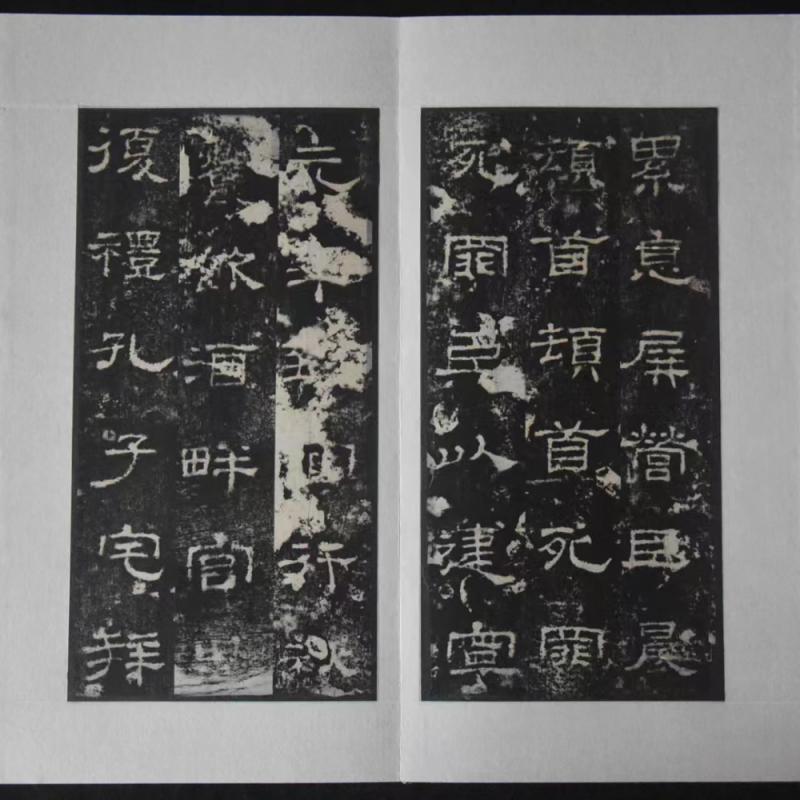 累息屏營臣晨
頓首頓首死罪
死罪臣以建寧
元年到官行秋
饗飲酒畔宮
復禮孔子宅拜